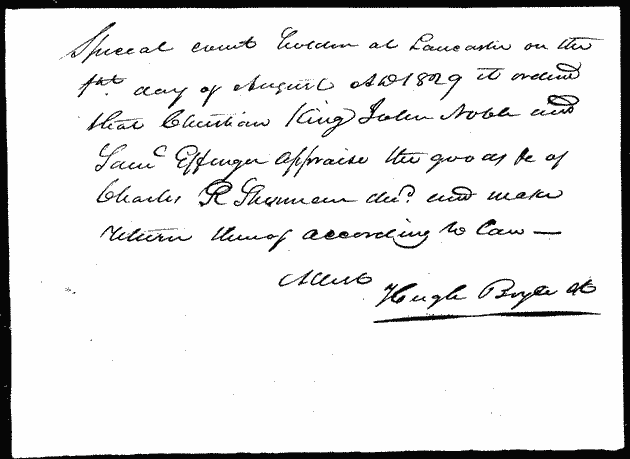 Special court holden at Lancaster on the
1st day of August AD 1829 it ordered
that Christian King John Noble and
Saml Effinger appraise the goods &c of
Charles R Sherman decd. and make
return thereof according to law —
Attest
Hugh Boyle clk